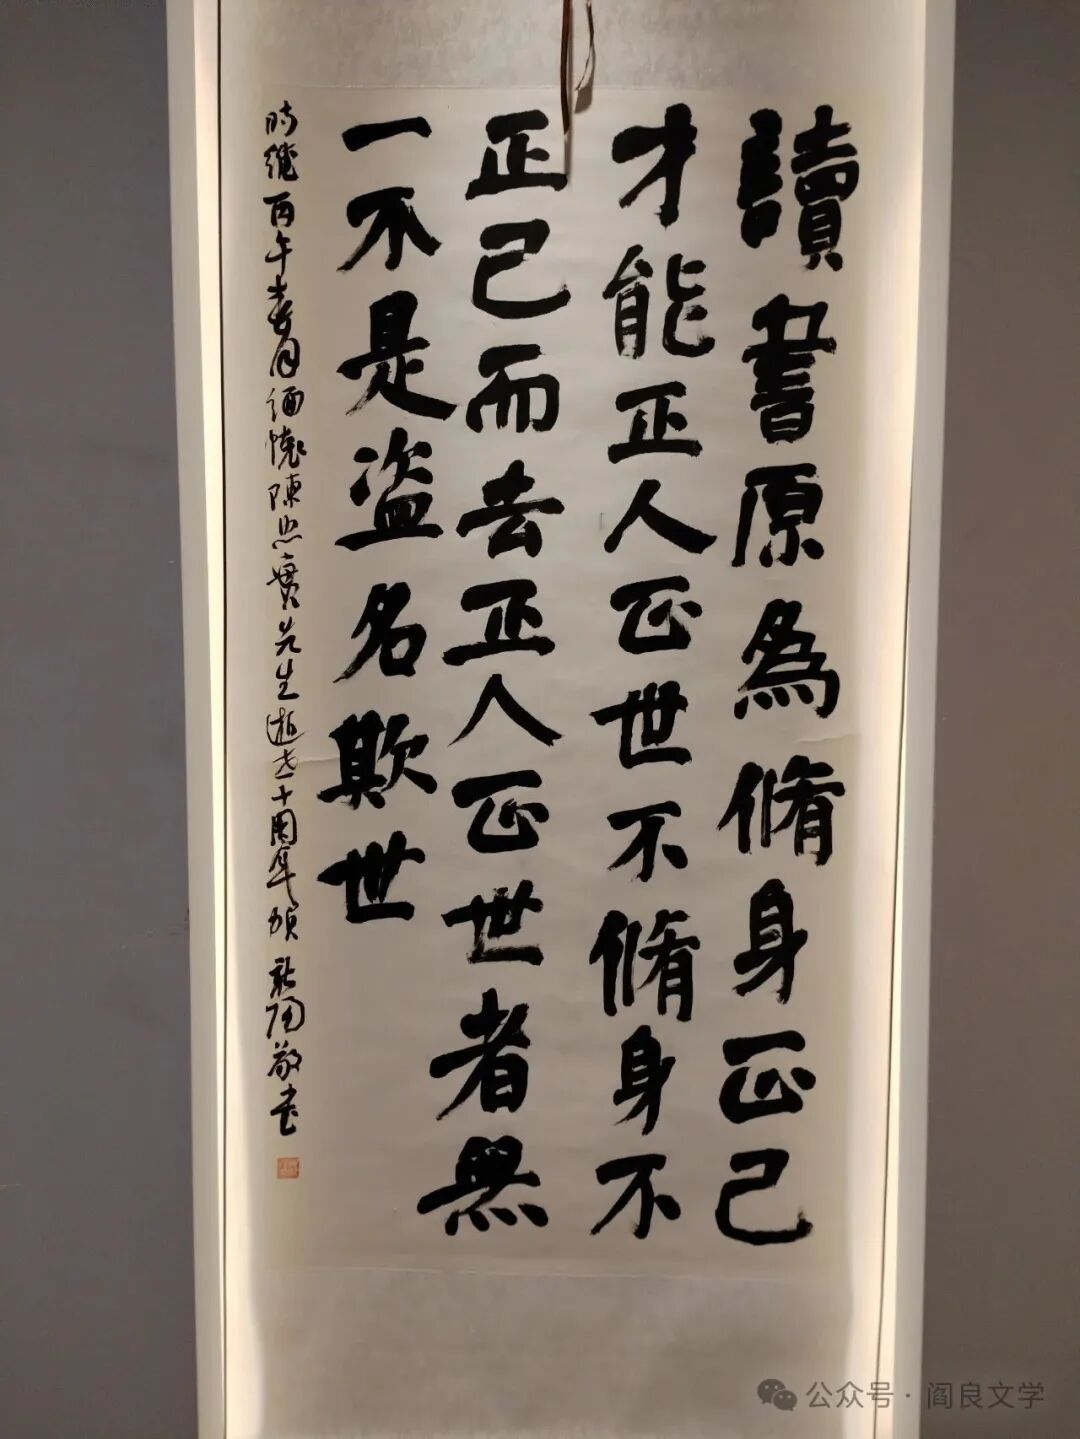 讀書原為脩身正己
才能正人正世不脩身不
正己而去正人正世者無
一不是盗名欺世
時維丙午春月緬懷陳忠實先生逝世十周年 敬書
公众号·阎良文学